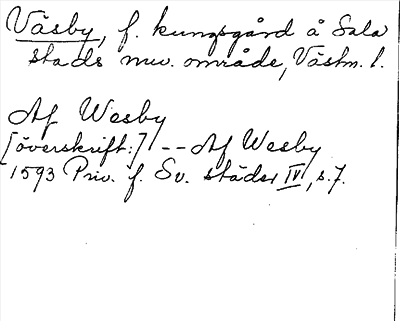 Väsby, f. kungsgård å Sala
stads nuv. område, Västm. l.
Af Wesby
[överskrift:] -- Af Wesby
1593 Priv. f. Sv. städer IV, s. 7.